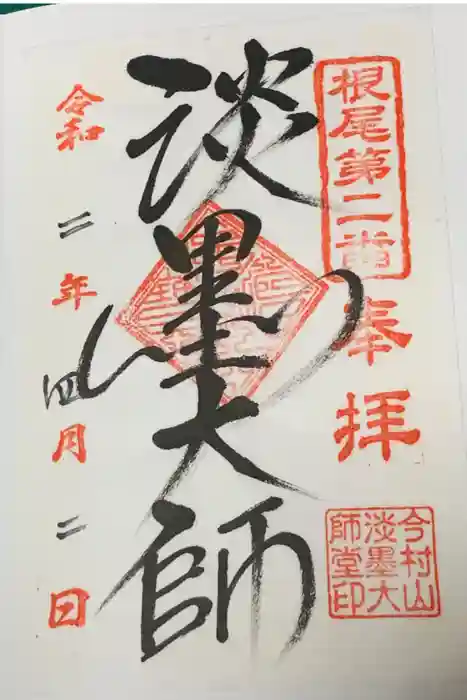 根尾第二番
奉拝
淡墨大師
令和二年四月二日
今村山
淡墨大
師堂印